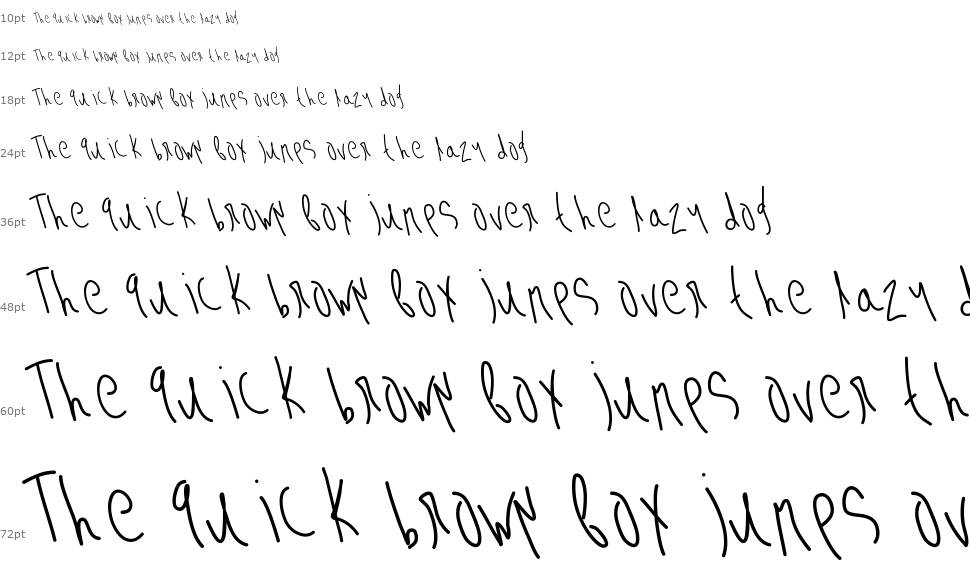 10pt The quick brown fox jumps over the lazy dog
12pt The quick brown fox jumps over the lazy dog
18pt The quick brown fox jumps over the lazy dog
24pt The quick brown fox jumps over the lazy dog
36pt The quick brown fox jumps over the lazy dog
48pt The quick brown fox jumps over the lazy d
60pt The quick brown fox jumps over th
72pt The quick brown fox jumps ov